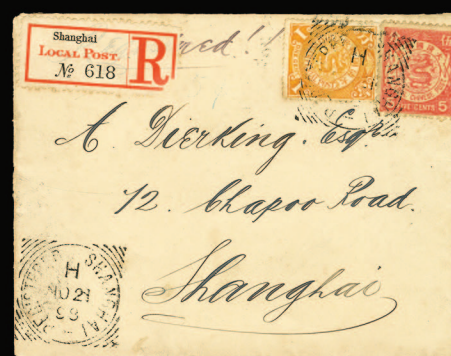 Shanghai
LOCAL POST.
№ 618
R
1
H
CENTS 5
A. Dierking. Esqre
12. Chapoo Road.
Shanghai
REGISTERED SHANGHAI
H
NO 21
99